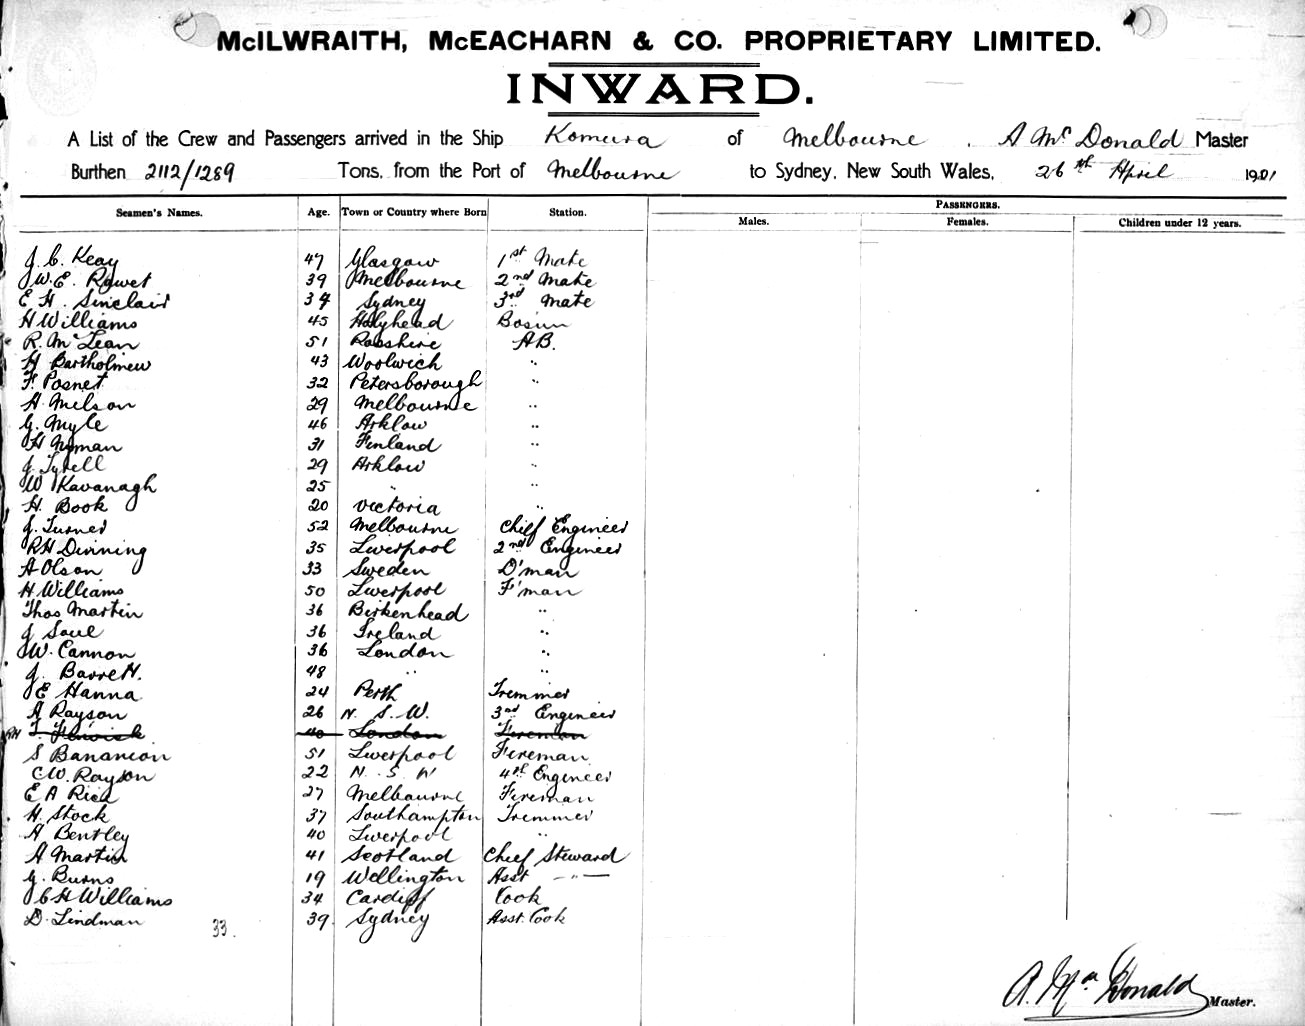 McILWRAITH, McEACHARN & CO. PROPRIETARY LIMITED.
INWARD.
A List of the Crew and Passengers arrived in the Ship Komura of Melbourne, A McDonald Master
Burthen 2112/1289 Tons, from the Port of Melbourne to Sydney, New South Wales, 26th April 1901
Seamen's Names. Age. Town or Country where Born Station. PASSENGERS.
Males. Females. Children under 12 years.
J. C. Keay 47 Glasgow 1st Mate
J W. E. 39 Melbourne 2nd Mate
E H. Sinclair 34 Sydney 3rd Mate
H Williams 45 Holyhead Bosun
R. McLean 51 Rosshire AB.
H Bartholmew 43 Woolwich "
F. Posnet 32 Petersborough "
H. Melson 29 Melbourne "
G. Myle 46 Arklow "
H Nyman 31 Finland "
J Tyrell 29 Arklow "
W Kavanagh 25 " "
H. Book 20 Victoria "
J. Turner 52 Melbourne Chief Engineer
RH Dinning 35 Liverpool 2nd Engineer
A Olson 33 Sweden D'man
H Williams 50 Liverpool F'man
Thos Martin 36 Birkenhead "
J Saul 36 Ireland "
W. Cannon 36 London "
J. Barrett. 48 " "
J E Hanna 24 Perth Tremmer
A Rayson 26 N. S. W. 3rd Engineer
40 London Fireman
S Bananion 51 Liverpool Fireman
C W. Rayson 22 N. S W 4th Engineer
E A Rica 27 Melbourne Fireman
H. Stock 37 Southampton Tremmer
A Bentley 40 Liverpool "
A Martin 41 Scotland Chief Steward
G. Burns 19 Wellington Asst — " —
J C H Williams 34 Cardiff Cook
D. Lindman 39. Sydney Asst. Cook
33.
A. McDonald Master.